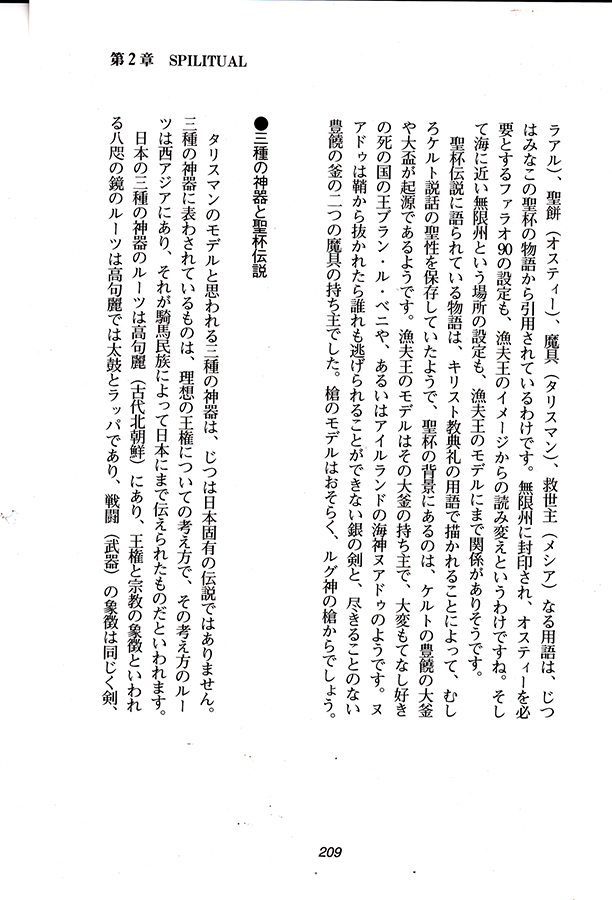 第2章　SPILITUAL
ラアル)、聖餅（オスティー）、魔具（タリスマン）、救世主（メシア）なる用語は、じつ
はみなこの聖杯の物語から引用されているわけです。無限州に封印され、オスティーを必
要とするファラオ90の設定も、漁夫王のイメージからの読み変えというわけですね。そし
て海に近い無限州という場所の設定も、漁夫王のモデルにまで関係がありそうです。
　聖杯伝説に語られている物語は、キリスト教典礼の用語で描かれることによって、むし
ろケルト説話の聖性を保存していたようで、聖杯の背景にあるのは、ケルトの豊饒の大釜
や大盃が起源であるようです。漁夫王のモデルはその大釜の持ち主で、大変もてなし好き
の死の国の王ブラン・ル・ベニや、あるいはアイルランドの海神ヌアドゥのようです。ヌ
アドゥは鞘から抜かれたら誰れも逃げられることができない銀の剣と、尽きることのない
豊饒の釜の二つの魔具の持ち主でした。槍のモデルはおそらく、ルグ神の槍からでしょう。
●三種の神器と聖杯伝説
　タリスマンのモデルと思われる三種の神器は、じつは日本固有の伝説ではありません。
三種の神器に表わされているものは、理想の王権についての考え方で、その考え方のルー
ツは西アジアにあり、それが騎馬民族によって日本にまで伝えられたものだといわれます。
　日本の三種の神器のルーツは高句麗（古代北朝鮮）にあり、王権と宗教の象徴といわれ
る八咫の鏡のルーツは高句麗では太鼓とラッパであり、戦闘（武器）の象徴は同じく剣、
209